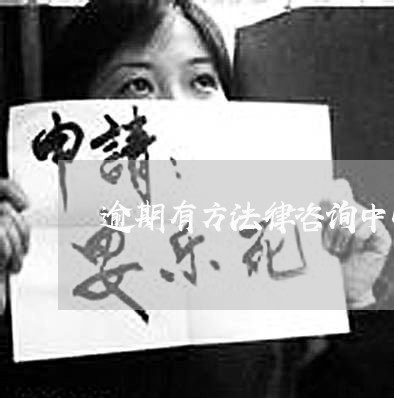 申請：
逾期有方法律咨询中
安乐死